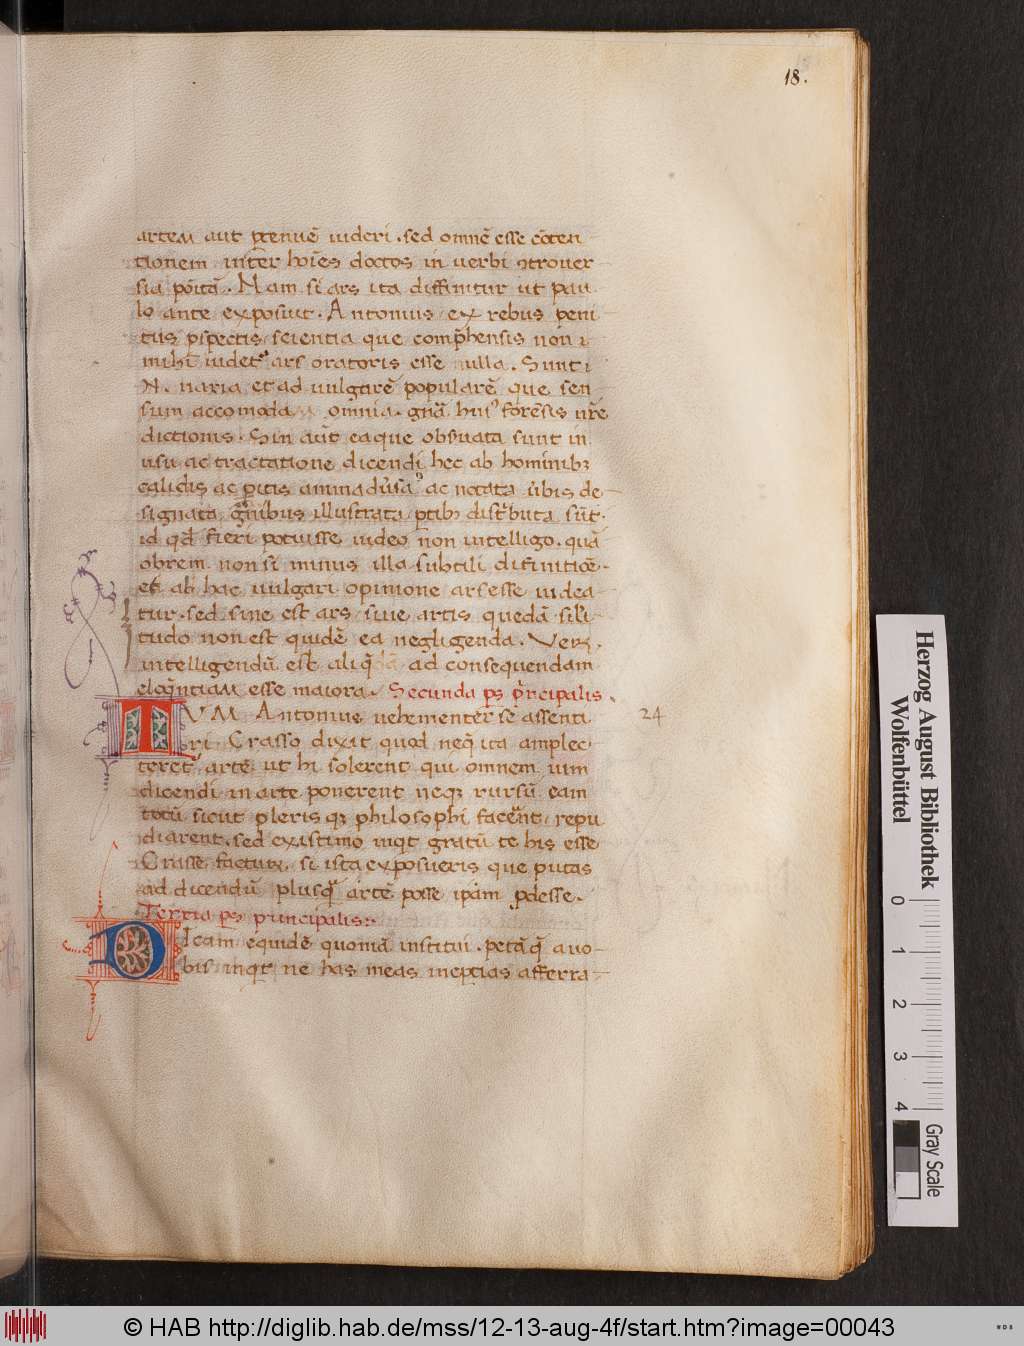 18.
artem aut ꝑtenuē uideri . sed omnē esse cōten
tionem inter hoīes doctos in uerbi ꝯtrouer
sia pōitā . Nam si ars ita diffinitur ut pau
lo ante exposuit . Antonius ex rebus peni
tus ꝑspectis scientia que comp̄hensis non
mihi uidet ars oratoris esse ulla . Sunt
N. uaria et ad uulgarē popularē que sen
sum accomoda omnia forēsis nr̄e
dictionis . Sin aūt ea que obsuata sunt in
usu ac tractatione dicendi hec ab hominibꝫ
calidis ac ꝑitis ac notata ūbis de
signata illustrata ꝑtibꝫ sūt .
id qd̄ fieri potuisse uideo non intelligo . quā
obrem non si minus illa subtili difinitiōe
et ab hac uulgari opinione ars esse uidea
tur . sed sine est ars siue artis quedā sili
tudo non est quidē ea negligenda . Verꝝ
intelligendū est aliq̄ ad consequendam
eloq̄ntiam esse maiora . Secunda ps p̄ncipalis .
TVM Antonius uehementer se assenti
ri Crasso dixit quod neq̄ ita amplec
teret artē ut hi solerent qui omnem uim
dicendi in arte ponerent neqꝫ rursū eam
totū sicut pleriqꝫ philosophi facerent repu
diarent . sed existimo inqt gratū te his esse
Crasse facturꝝ . si ista exposueris que putas
ad dicendū plusq̄ artē posse ipām ꝓdesse .
Tertia ps principalis .
Dicam equidē quoniā institui . petāq̄ a uo
bis inqt ne has meas ineptias afferra
24
Herzog August Bibliothek
Wolfenbüttel
0
1
2
3
4
Gray Scale
© HAB http://diglib.hab.de/mss/12-13-aug-4f/start.htm?image=00043